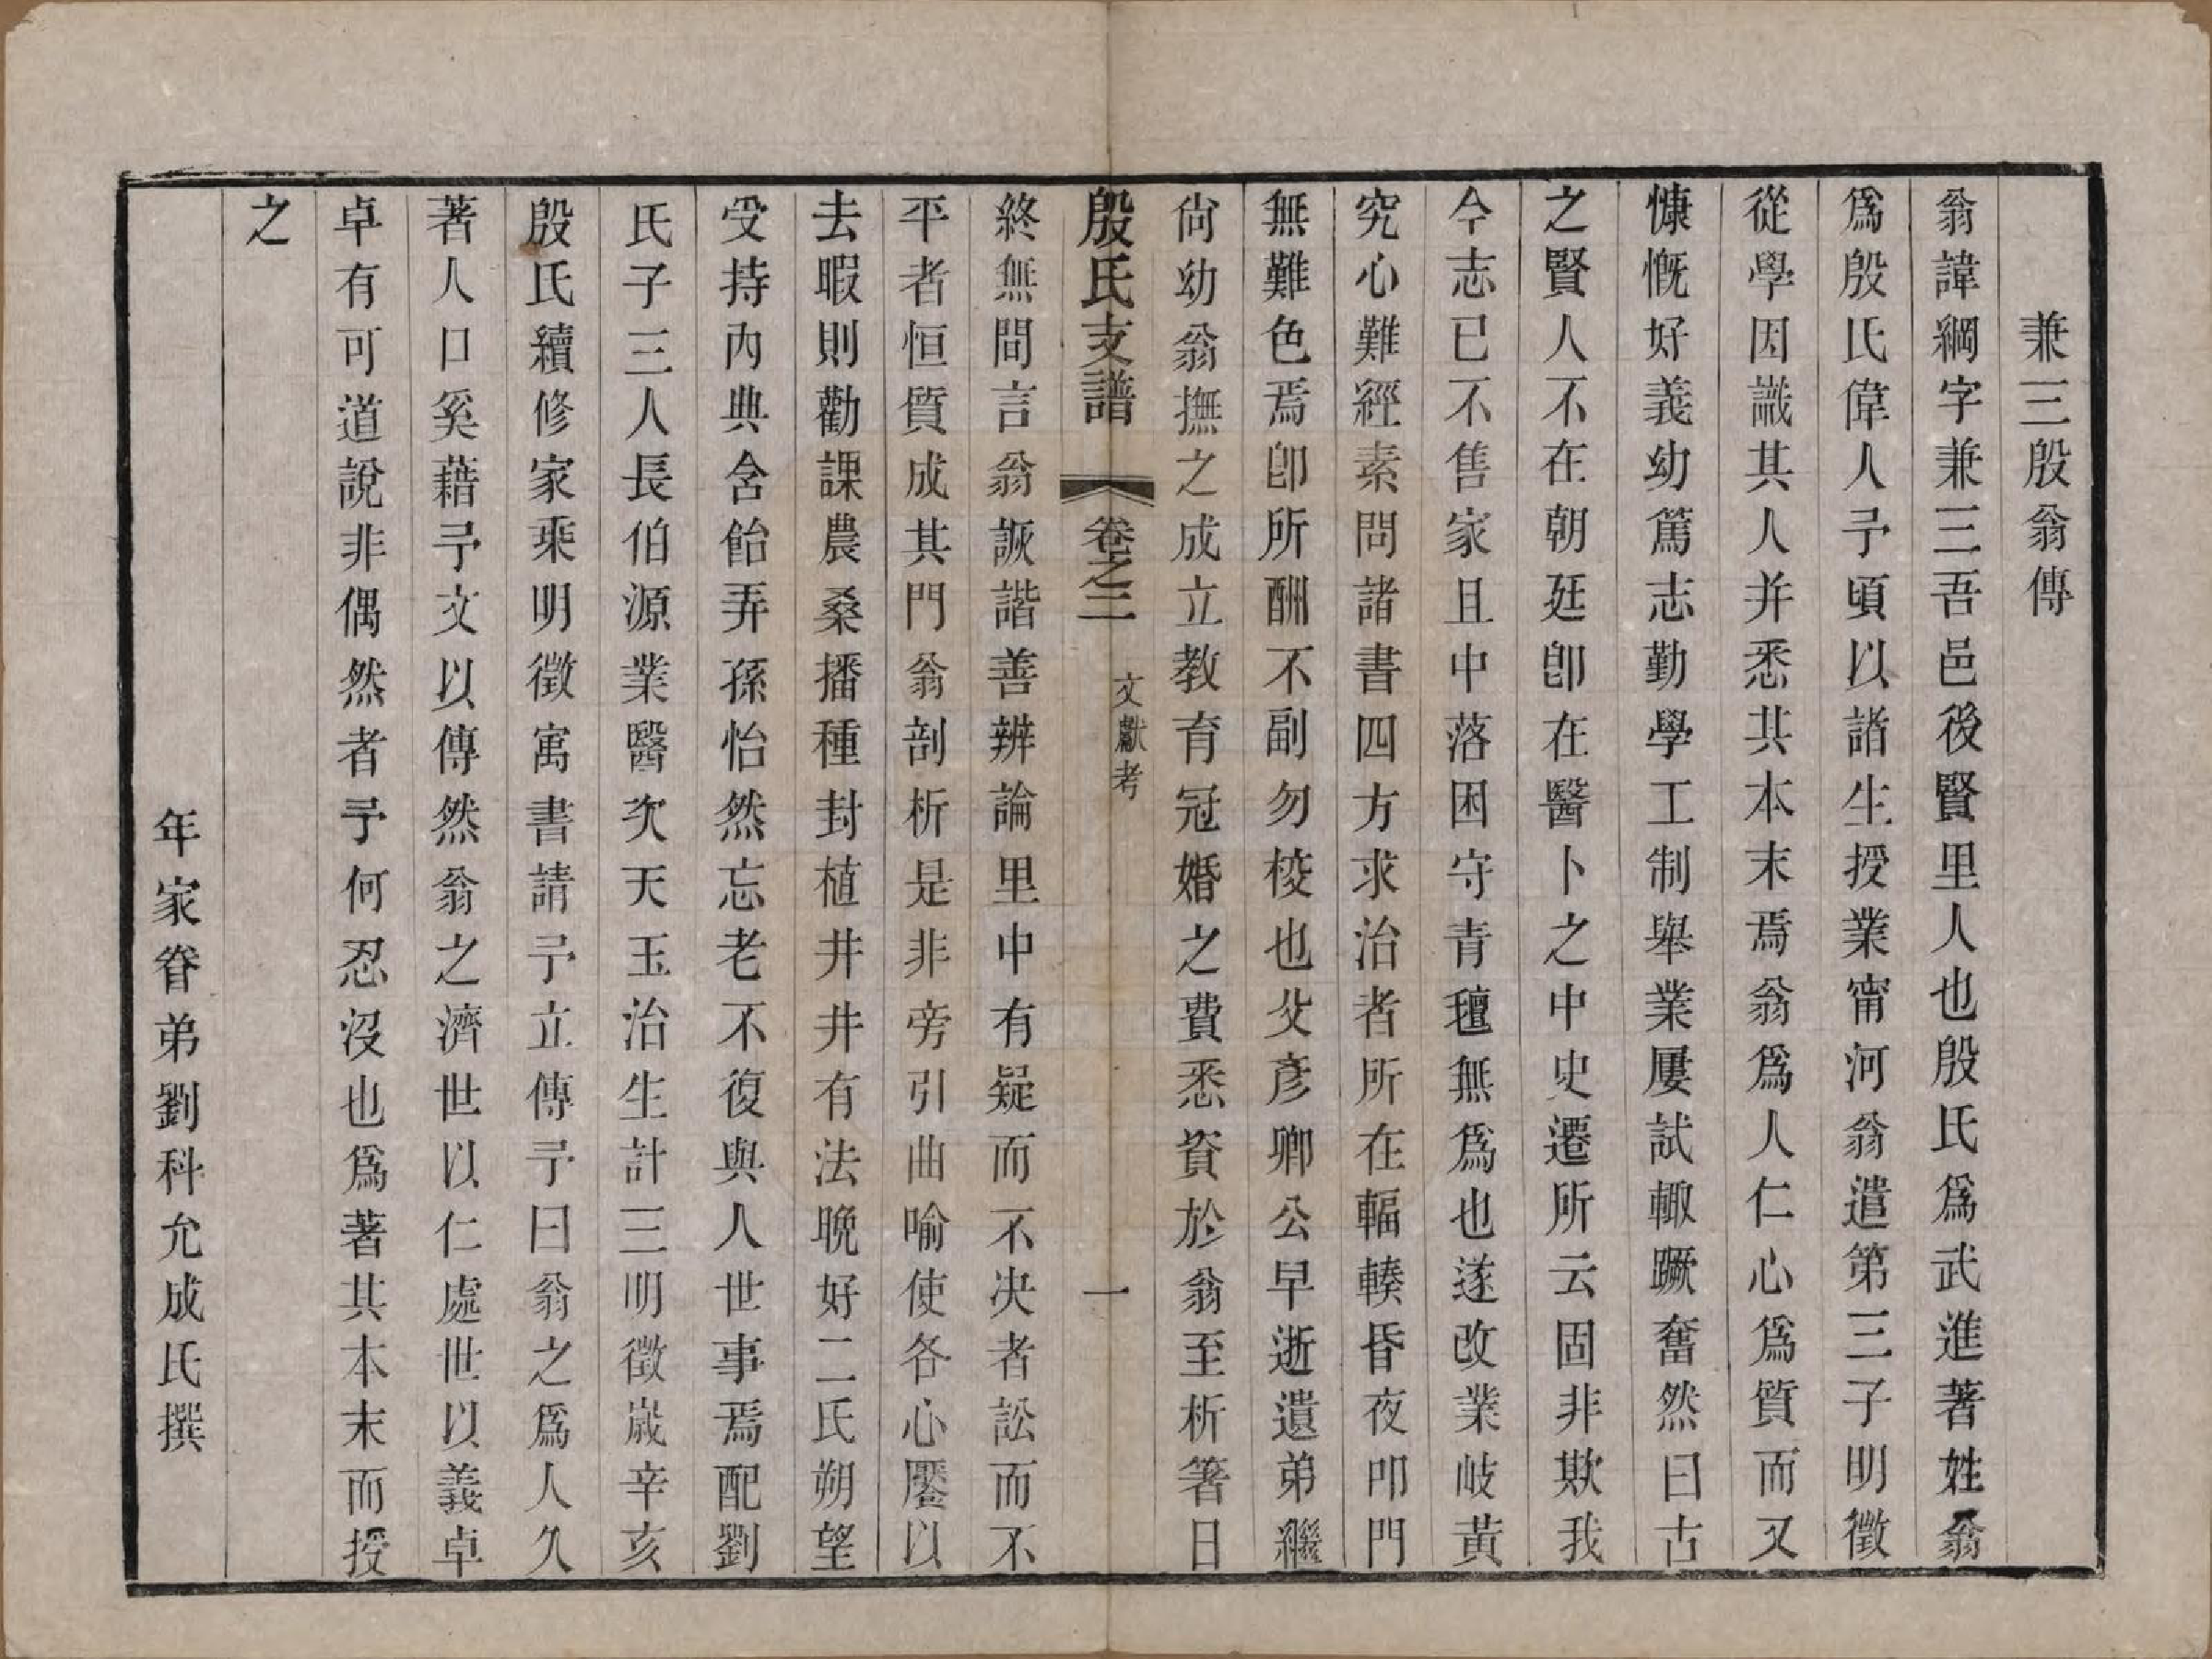 兼三殷翁傳
翁諱綱字兼三吾邑後賢里人也殷氏爲武進著姓翁
爲殷氏偉人予頃以諸生授業甯河翁遣第三子明徵
從學因識其人并悉其本末焉翁爲人仁心爲質而又
慷慨好義幼篤志勤學工制舉業屢試輙蹶奮然曰古
之賢人不在朝廷卽在醫卜之中史遷所云固非欺我
今志已不售家且中落困守青氊無爲也遂改業岐黃
究心難經素問諸書四方求治者所在輻輳昏夜叩門
無難色焉卽所酬不副勿校也父彥卿公早逝遺弟繼
尙幼翁撫之成立教育冠婚之費悉資於翁至析箸日
殷氏支譜 卷之二 文獻考 一
終無間言翁詼諧善辨論里中有疑而不决者訟而不
平者恒質成其門翁剖析是非旁引曲喻使各心饜以
去暇則勸課農桑播種封植井井有法晩好二氏朔望
受持內典含飴弄孫怡然忘老不復與人世事焉配劉
氏子三人長伯源業醫次天玉治生計三明徵歲辛亥
殷氏續修家乘明徵寓書請予立傳予曰翁之爲人久
著人口奚藉予文以傳然翁之濟世以仁處世以義卓
卓有可道說非偶然者予何忍沒也爲著其本末而授
之
年家眷弟劉科允成氏撰